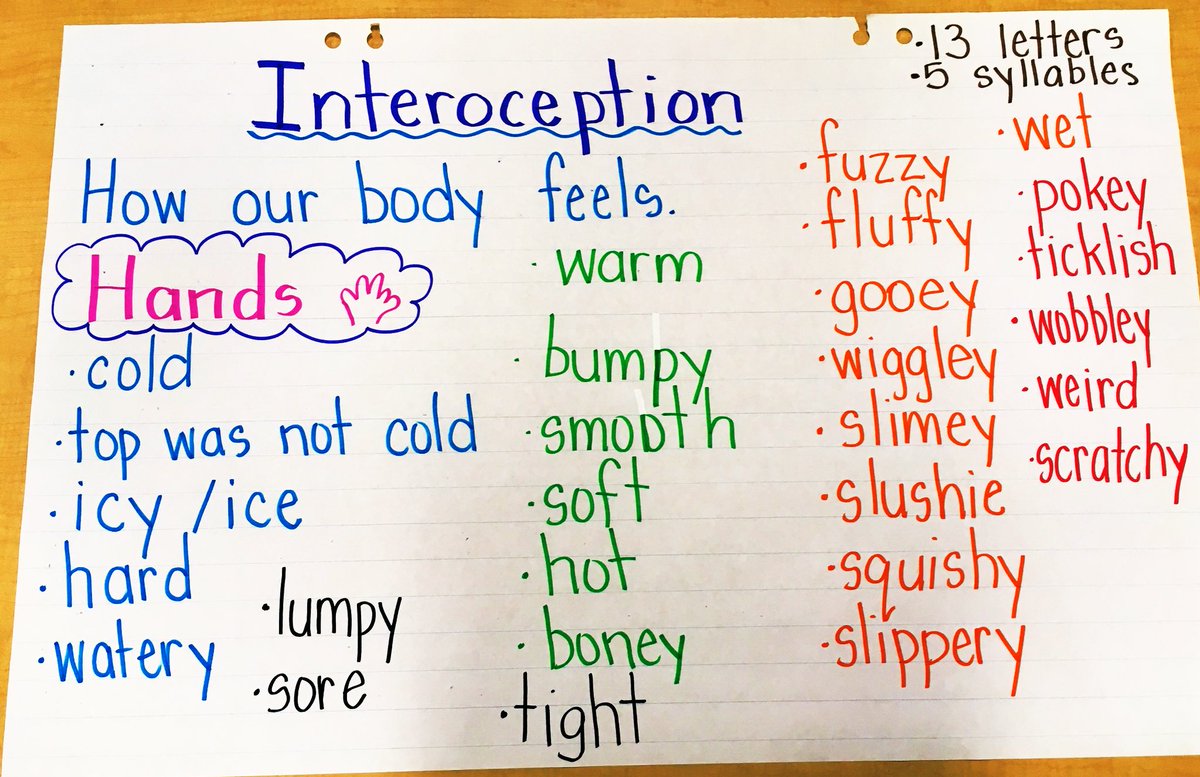 ·13 letters
·5 syllables
Interoception
How our body feels.
Hands
·cold
·top was not cold
·icy /ice
·hard
·watery
·lumpy
·sore
·warm
·bumpy
·smooth
·soft
·hot
·boney
·tight
·fuzzy
·fluffy
·gooey
·wiggley
·slimey
·slushie
·squishy
·slippery
·wet
·pokey
·ticklish
·wobbley
·weird
·scratchy